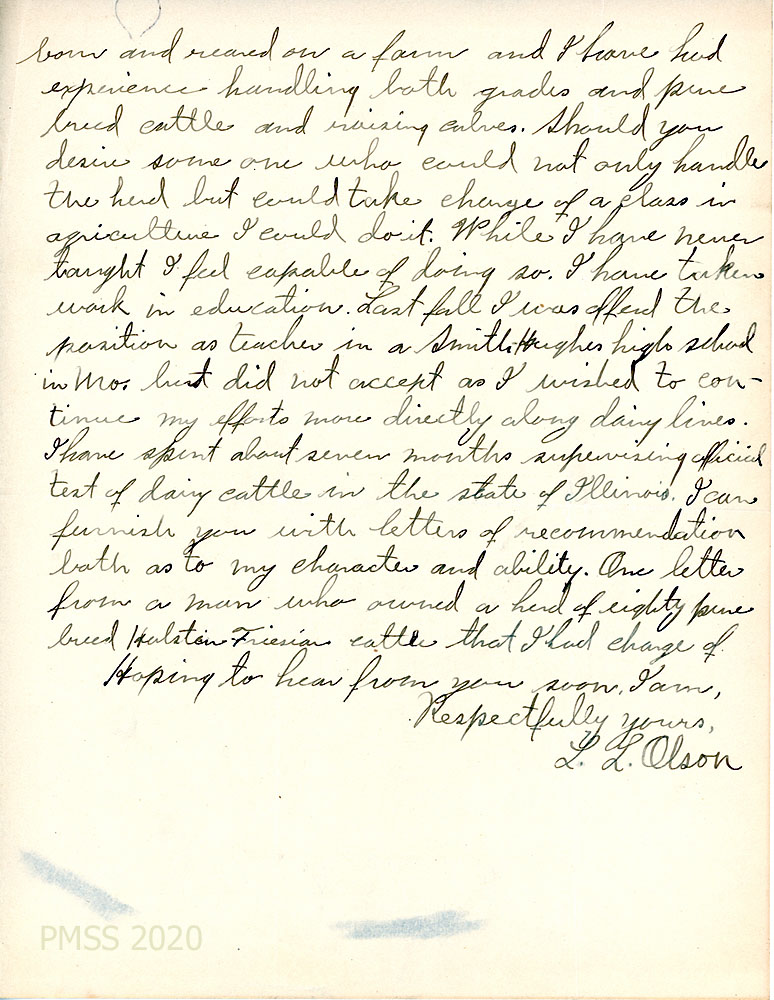 born and reared on a farm and I have had
experience handling both grades and pure
bred cattle and raising calves. Should you
desire some one who could not only handle
the herd but could take charge of a class in
agriculture I could do it. While I have never
taught I feel capable of doing so. I have taken
work in education. Last fall I was offerd the
position as teacher in a Smith Hughes high school
in Mo. but did not accept as I wished to con-
tinue my efforts more directly along dairy lines.
I have spent about seven months supervising official
test of dairy cattle in the state of Illinois. I can
furnish you with letters of recommendation
both as to my character and ability. One letter
from a man who owned a herd of eighty pure
bred Holstein Friesian cattle that I had charge of.
Hoping to hear from you soon, I am,
Respectfully yours,
L. L. Olson
PMSS 2020